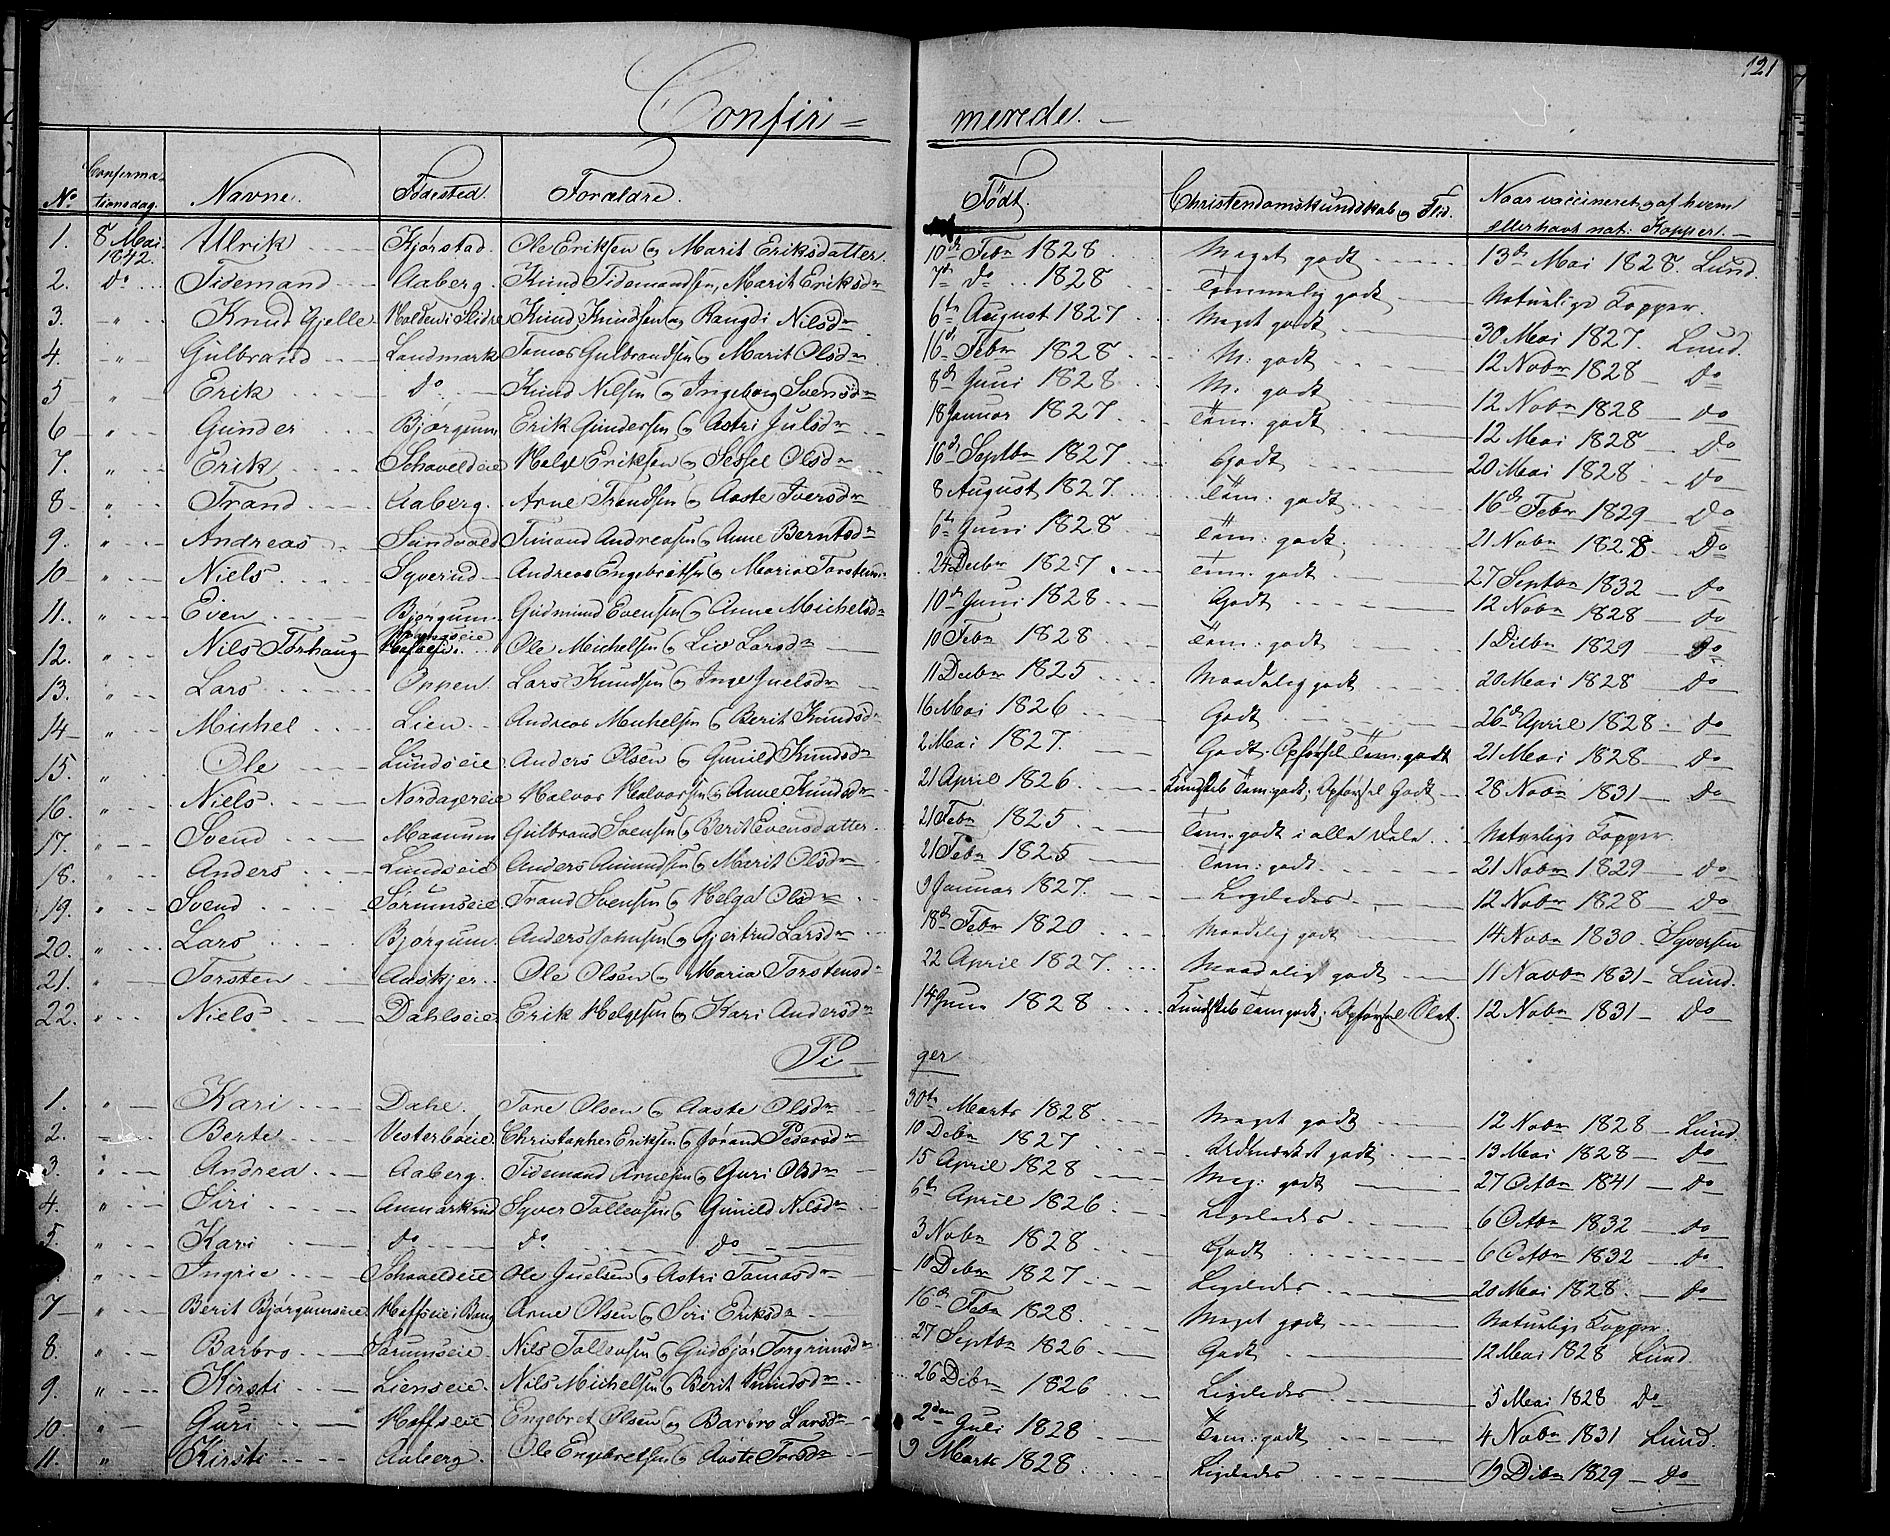 121
Confir= merede.
No. Confirma=tionsdag. Navne. Fødested. Forældre. Født. Christendomskundskab og Flid. Naar vaccineret og af hvem eller havt nat: Kopper.
1. 8 Mai 1842. Ulrik Kjørstad. Ole Eriksen og Marit Eriksdatter. 10de Febr 1828 Meget godt 13de Mai 1828. Lund.
2. Do Tidemand Aaberg. Knud Tidemandsen, Marit Eriksdr 7de Do 1828 Temmelig godt Naturlige Kopper.
3. " Knud Gjelle Halden i Slidre Knud Knudsen og Rangdi Nilsdr 6te August 1827 Meget godt 30 Mai 1827. Lund.
4. " Gulbrand Landmark Tomas Gulbrandsen og Marit Olsdr 16de Febr 1828 M: godt 12 Nobr 1828 Do
5 " Erik Do Knud Nilsen og Ingeborg Svensdr 8de Juni 1828 M: godt 12 Nobr 1828 do
6 " Gunder Bjørgum Erik Gundersen og Astri Julsdr 18 Januar 1827. Tem: godt 12 Mai 1828 Do
7. " Erik Schaveldeie Helge Eriksen og Sessel Olsdr 16de Septbr 1827 Godt 20 Mai 1828 do
8 " Trand Aaberg. Arne Trandsen og Aaste Iversdr 8 August 1827. Tem: godt 16de Febr 1829 Do
9. " Andreas Sundvold Simand Andreasen og Anne Berntsdr 6te Juni 1828 Tem: godt 21 Nobr 1828 Do
10 " Niels Syverud Andreas Engebretsen og Maria Torstensdr 24 Decbr 1827. Tem: godt 27 Septbr 1832 do
11. " Even Bjørgum Gudmund Evensen og Anne Michelsdr 10de Juni 1828 Godt 12 Nobr 1828 do
12. " Nils Tørhaug Ole Michelsen og Liv Larsdr 10 Febr 1828 Tem: godt 1 Decbr 1829 Do
13. " Lars Oppen. Lars Knudsen og Inge Juelsdr 11 Decbr 1825 Maadelig godt 20 Mai 1828 do
14 " Michel Lien Andreas Michelsen og Berit Knudsdr 16 Mai 1826 Godt 26de April 1828 do
15. " Ole Lundseie Anders Olsen og Gunild Knudsdr 2 Mai 1827. Godt. Opførsel Tem: godt 21 Mai 1828 do
16. " Niels Nordagereie Halvor Halvorsen og Anne Knudsdr 21 April 1826 Kundskab Tem: godt; Opførsel Godt 28 Nobr 1831 Do
17. " Svend Maanum Gulbrand Svensen og Berit Evensdatter. 21 Febr 1825 Tem: godt i alle Dele. Naturlige Kopper.
18. " Anders Lundseie Anders Amundsen og Marit Olsdr 21 Febr 1825 Tem: godt 21 Nobr 1829 do
19. " Svend Sørumseie. Trand Svensen og Helga Olsdr 9 Januar 1827. Ligeledes 12 Nobr 1828 Do
20. " Lars Bjørgum. Anders Johnsen og Gjertrud Larsdr 18de Febr 1820 Maadelig godt 14 Nobr 1830. Syversen
21. " Torsten Aaskjer Ole Olsen og Maria Torstensdr 22 April 1827. Maadelig godt 11 Novbr 1831 Lund.
22. " Niels Dahlseie Erik Helgesen og Kari Andersdr 14 Juni 1828 Kundskab Tem godt; Opførsel Slet. 12 Nobr 1831 Do
Pi= ger
1. " Kari Dahl. Tore Olsen og Aaste Olsdr 30te Marts 1828 Meget godt 12 Nobr 1828 Lund.
2. " Berte Vesterbøeie Christopher Eriksen og Jørand Pedersdr 10 Debr 1827 Udmærket godt 13 Mai 1828 Do
3 " Andrea Aaberg. Tidemand Arnesen og Guri Olsdr 15 April 1828 Meg: godt 27 Octbr 1841 Do
4. " Siri Aanmarkrud Syver Tollevsen og Gunild Nilsdr 6te April 1826 Ligeledes 6 Octbr 1832 do
5. " Kari do do Do 3 Nobr 1828 Godt 6 Octbr 1832 do
" Ingrie Schaveldeie Ole Juelsen og Astri Tomasdr 10 Debr 1827 Ligeledes 20 Mai 1828 do
7 " Berit Bjørgumseie Hoffseie i Bang Arne Olsen og Siri Eriksdr 16de Febr 1828. Meget godt Naturlige Kopper.
8. " Barbro Sørumseie. Nils Tollevsen og Gudbjør Torgrimsdr 27 Septbr 1826 Godt 12 Mai 1828 Lund
9. " Kirsti Lienseie. Nils Michelsen og Berit Knudsdr 26 Debr 1826 Ligeledes 5 Mai 1828 Do
10 " Guri Hoffseie Engebret Olsen og Barbro Larsdr 2den Juli 1828 Tem: godt 4 Nobr 1831 Lund.
11. " Kirsti Aaberg Ole Engebretsen og Aaste Torsdr 9 Marts 1828 Ligeledes 19 Debr 1829 Do